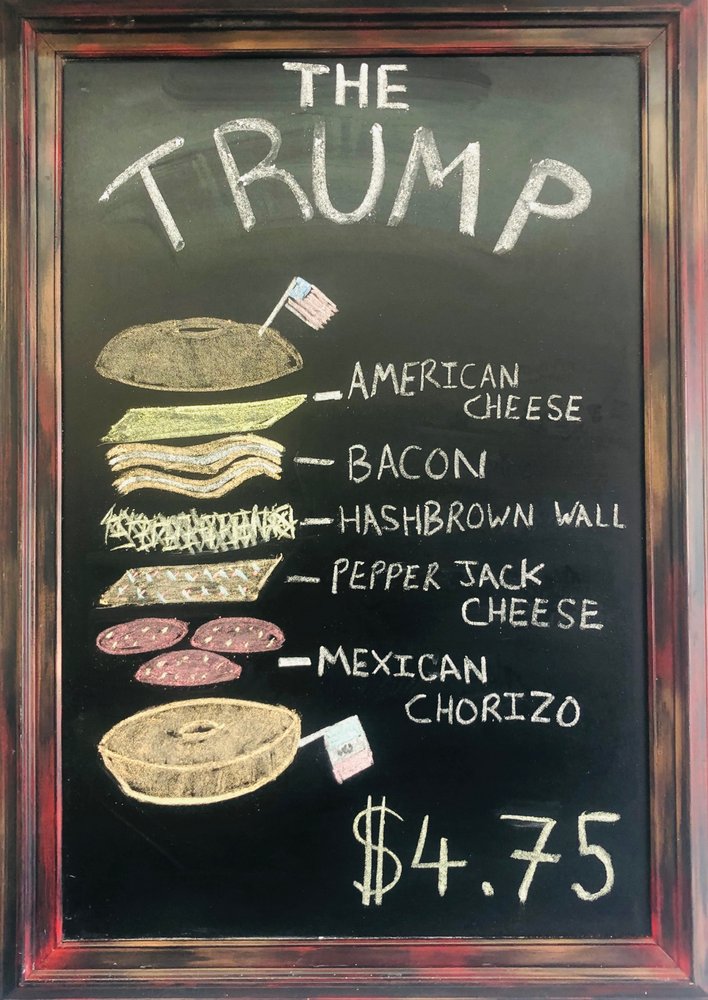 THE
TRUMP
AMERICAN
CHEESE
BACON
HASHBROWN WALL
PEPPER JACK
CHEESE
MEXICAN
CHORIZO
$4.75